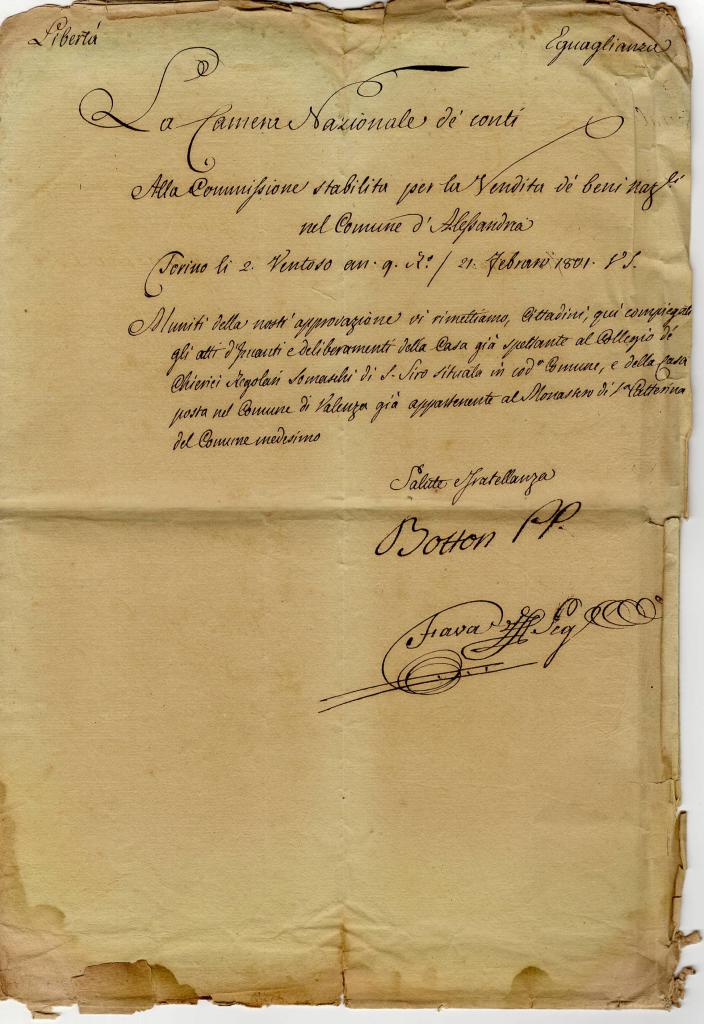 Libertà Eguaglianza
La Camera Nazionale de' conti
Alla Commissione stabilita per la Vendita de' beni naz.li
nel Comune d'Alessandria
Torino li 2. Ventoso an. 9. R.o / 21. Febraro 1801. V. S.
Muniti della nostr' approvazione vi rimettiamo, Cittadini, qui compiegati
gli atti d'Incanti e deliberamenti della Casa già spettante al Collegio de'
Chierici Regolari Somaschi di S. Siro situata in cod.o Comune, e della Casa
posta nel Comune di Valenza già appartenente al Monastero di S.a Catterina
del Comune medesimo
Salute e fratellanza
Botton PP.
Fava Seg.o